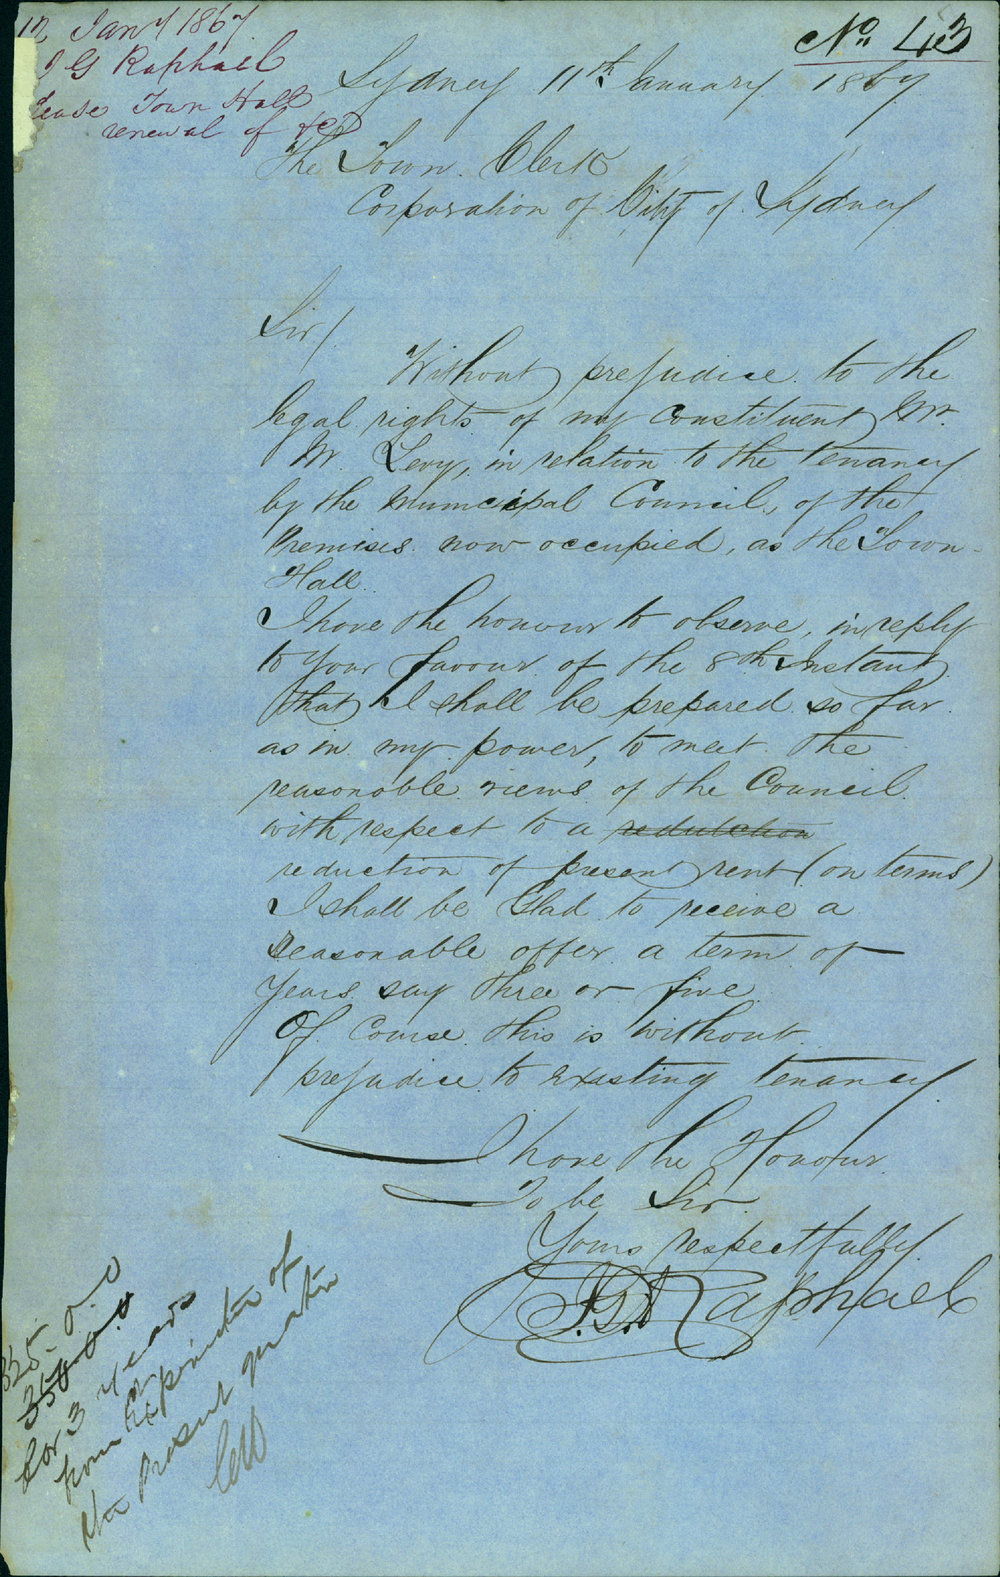 12 Jany 1867
J G Raphael
lease Town Hall
renewal of &c
No. 43
Sydney 11th January 1867
The Town Clerk
Corporation of City of Sydney
Sir/
Without prejudice to the
legal rights of my Constituent Mr.
M. Levy, in relation to the tenancy
by the Municipal Council, of the
Premises now occupied, as the Town
Hall.
I have the honour to observe, in reply
to your favour of the 8th Instant
that I shall be prepared so far
as in my power, to meet the
reasonable views of the Council
with respect to a redutction
reduction of present rent (on terms)
I shall be Glad to receive a
Reasonable offer a term of
Years say three or five
Of Course this is without
prejudice to Existing tenancy
I have the Honour
To be Sir
Yours respectfully
J.G. Raphael
325.0.0
350.0.0
for 3 years
from Expiration of
the Present quarter